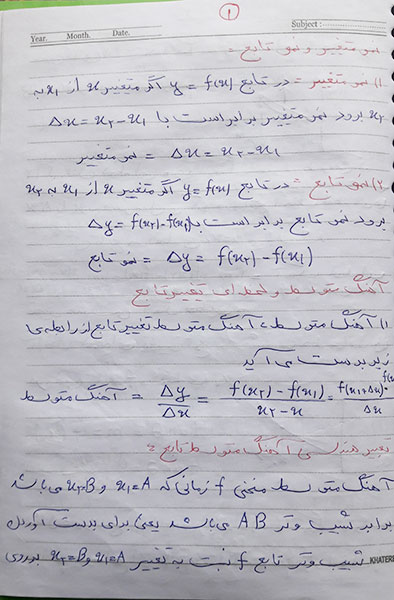 ۱
Year. Month. Date. Subject :
نمو متغییر و نمو تابع =
۱) نمو متغییر = در تابع y = f(x) اگر متغییر x از x₁ به
x₂ برود نمو متغییر برابر است با Δx = x₂ - x₁
نمو متغییر = Δx = x₂ - x₁
۲) نمو تابع = در تابع y = f(x) اگر متغییر x از x₁ به x₂
برود نمو تابع برابر است با Δy = f(x₂) - f(x₁)
نمو تابع = Δy = f(x₂) - f(x₁)
آهنگ متوسط و لحظه‌ای تغییر تابع
۱) آهنگ متوسط = آهنگ متوسط تغییر تابع از رابطه‌ی
زیر بدست می‌آید
آهنگ متوسط = Δy/Δx = f(x₂) - f(x₁) / x₂ - x = f(x₁+Δx) - / Δx
تعبیر هندسی آهنگ متوسط تابع =
آهنگ متوسط منحنی f زمانی که x₁=A و x₂=B می‌باشد
برابر شیب وتر AB می‌باشد یعنی برای بدست آوردن
شیب وتر تابع f نسبت به تغییر x₁=A و x₂=B برروی
KHATERE